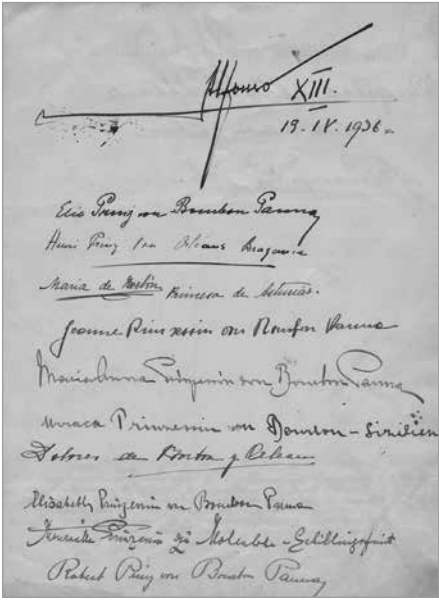 Alfonso XIII.
19.IV.1936
Elia Prinz von Bourbon Parma
Henri Prinz von Orléans Bragance
Maria de Borbón Princesa de Asturias.
Jeanne Prinzessin von Bourbon Parma
Maria Anna Prinzessin von Bourbon Parma
Urraca Prinzessin von Bourbon - Sizilien
Dolores de Borbon y Orleans
Elisabeth Prinzessin von Bourbon Parma
Prinzessin zu Hohenlohe - Schillingsfürst
Robert Prinz von Bourbon Parma